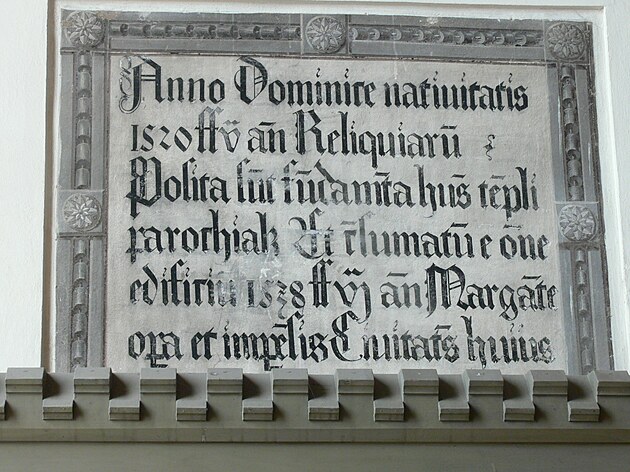 Anno Dominice natiuitatis
1520 ff v̄ an̄ Reliquiarū
Posita sūt fūdamt̄a huīs tēpli
parochialꝭ Et cs̄umatū e ōne
edificiū 1538 ff vj an̄ Margāte
oꝑa et impēsis Ciuitatīs huius